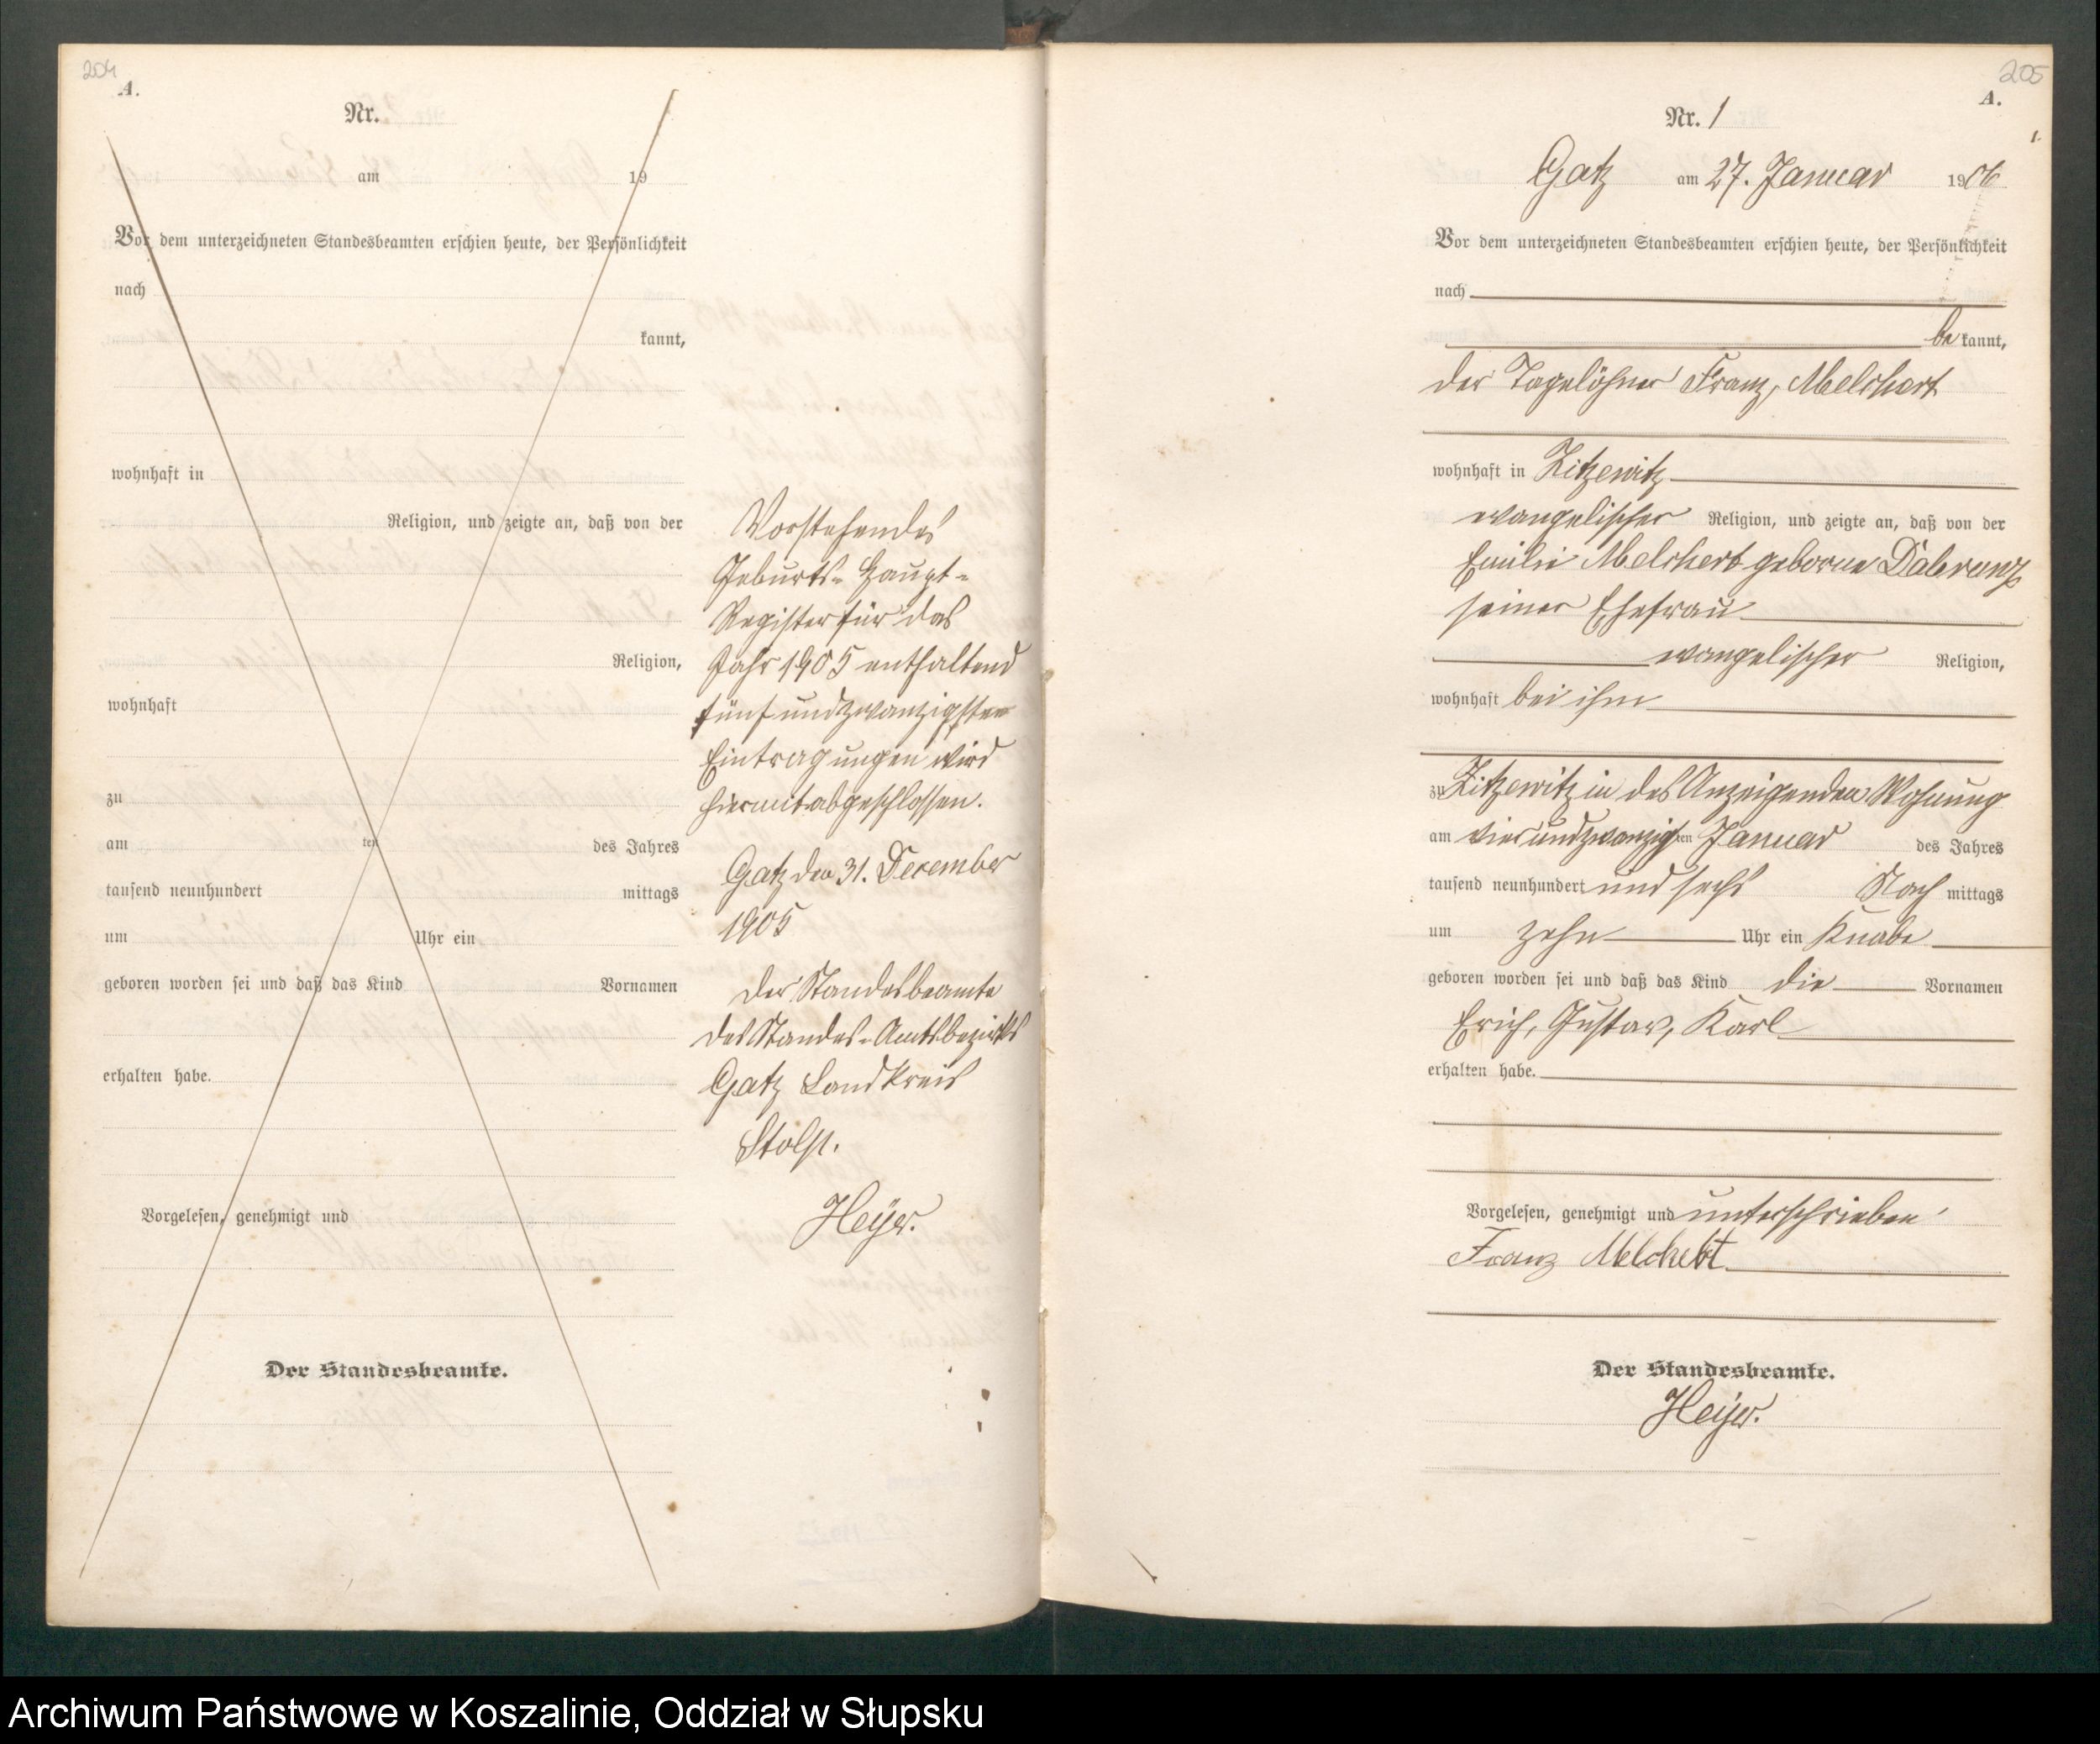 204
A.
Nr.
am 19
Vor dem unterzeichneten Standesbeamten erschien heute, der Persönlichkeit
nach
kannt,
wohnhaft in
Religion, und zeigte an, daß von der
Religion,
wohnhaft
zu
am ten des Jahres
tausend neunhundert mittags
um Uhr ein
geboren worden sei und daß das Kind Vornamen
erhalten habe.
Vorgelesen, genehmigt und
Der Standesbeamte.
Vorstehendes
Geburts-Haupt-
Register für das
Jahr 1905 enthaltend
fünfundzwanzigsten
Eintragungen wird
hiermit abgeschlossen.
Gatz den 31. December
1905
Der Standesbeamte
des Standes-Amtsbezirks
Gatz Landkreis
Stolp.
Heyer.
205
A.
1.
Nr. 1
Gatz am 27. Januar 1906
Vor dem unterzeichneten Standesbeamten erschien heute, der Persönlichkeit
nach
be kannt,
der Tagelöhner Franz, Melchert
wohnhaft in Zitzewitz
evangelischer Religion, und zeigte an, daß von der
Emilie Melchert geborne
seiner Ehefrau
evangelischer Religion,
wohnhaft bei ihm
zu Zitzewitz in des Anzeigenden Wohnung
am vierundzwanzigten Januar des Jahres
tausend neunhundert und sechs Nach mittags
um zehn Uhr ein Knabe
geboren worden sei und daß das Kind die Vornamen
Erich, Gustav, Karl
erhalten habe.
Vorgelesen, genehmigt und unterschrieben
Franz Melchert
Der Standesbeamte.
Heyer.
Archiwum Państwowe w Koszalinie, Oddział w Słupsku